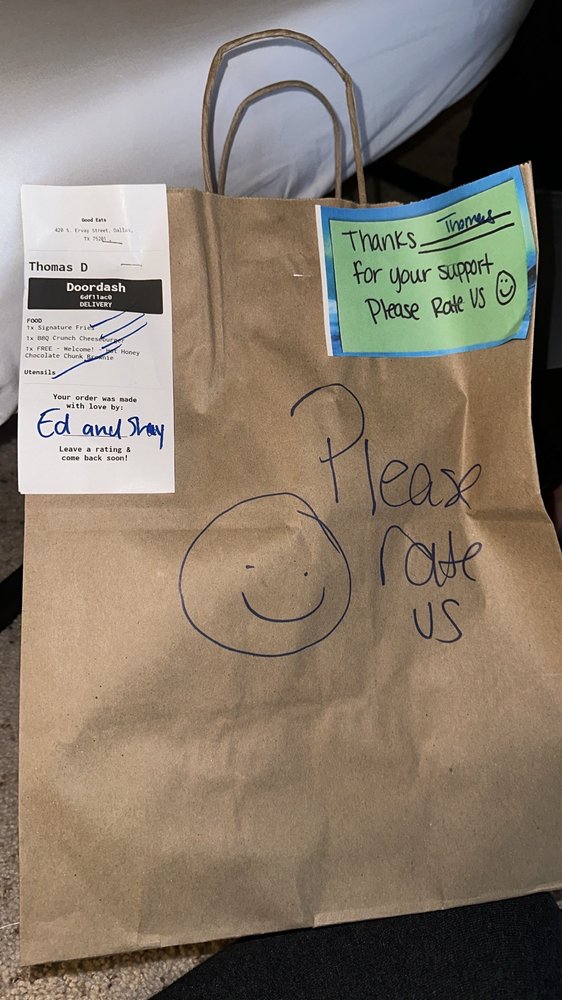 Good Eats
420 S. Ervay Street, Dallas,
TX 75201
Thomas D
Doordash
6df11ac0
DELIVERY
FOOD
1x Signature Fries
1x BBQ Crunch Cheeseburger
1x FREE - Welcome! - Hot Honey
Chocolate Chunk Brownie
Utensils
Your order was made
with love by:
Ed and Shay
Leave a rating &
come back soon!
Thanks Thomas
for your support
Please Rate US
Please
rate
us